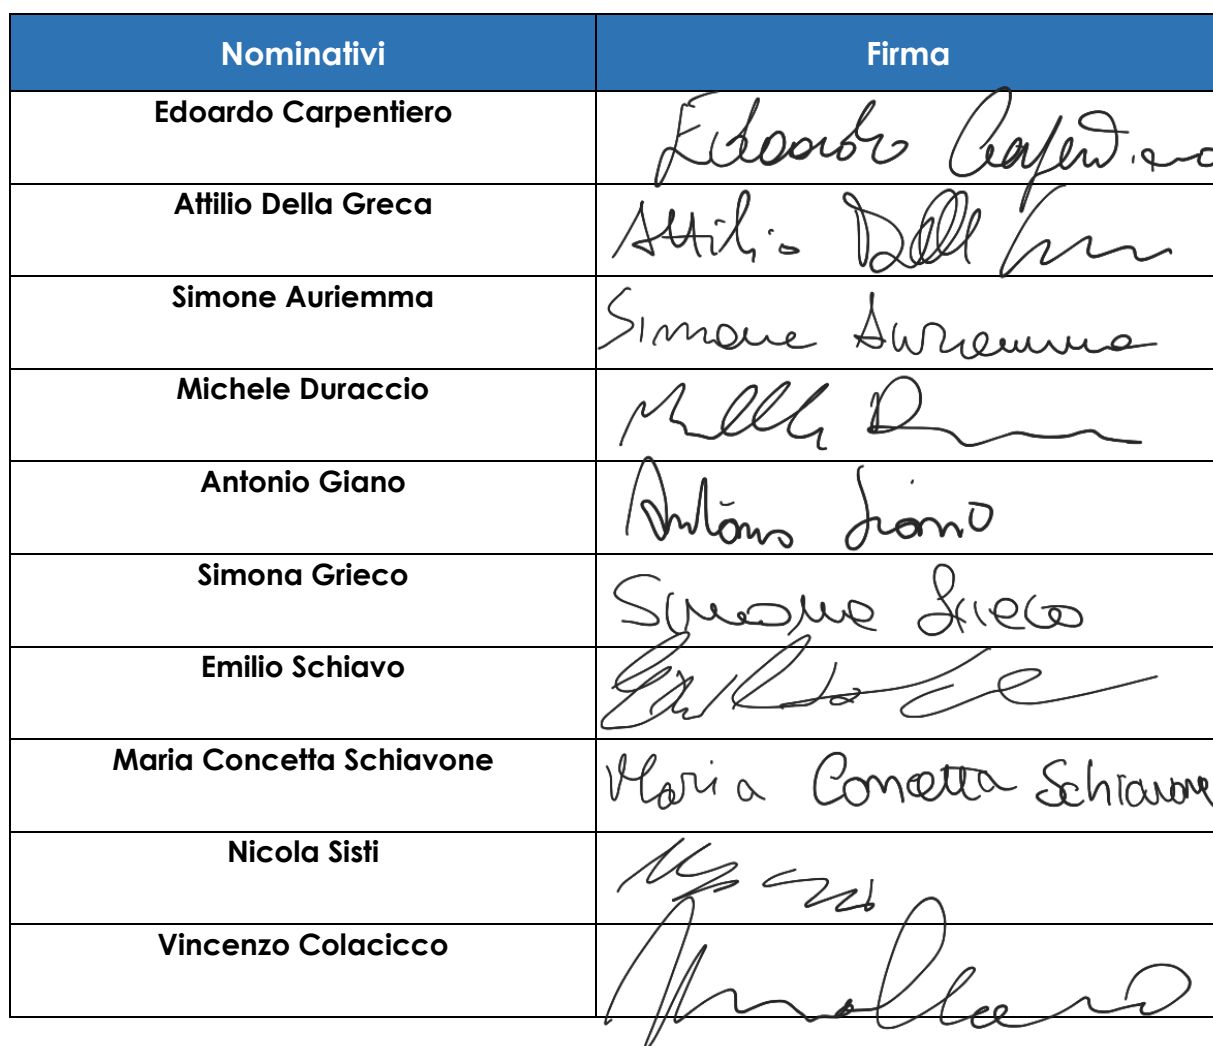 Nominativi Firma
Edoardo Carpentiero Edoardo Carpentiero
Attilio Della Greca Attilio Della
Simone Auriemma Simone Auriemma
Michele Duraccio
Antonio Giano Antonio Giano
Simona Grieco Simona Grieco
Emilio Schiavo
Maria Concetta Schiavone Maria Concetta Schiavone
Nicola Sisti
Vincenzo Colacicco